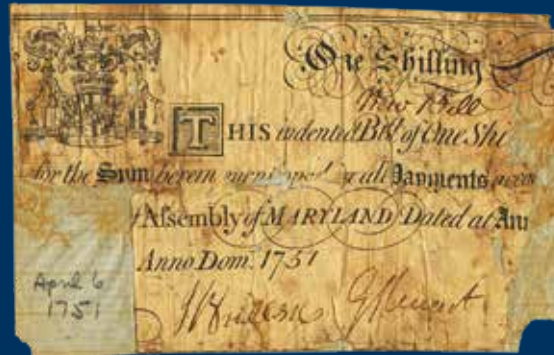 One Shilling
New Bill
THIS indented Bill of One Shi
for the Sum herein Payments
Assembly of MARYLAND Dated at Ann
Anno Dom. 1751
April 6
1751